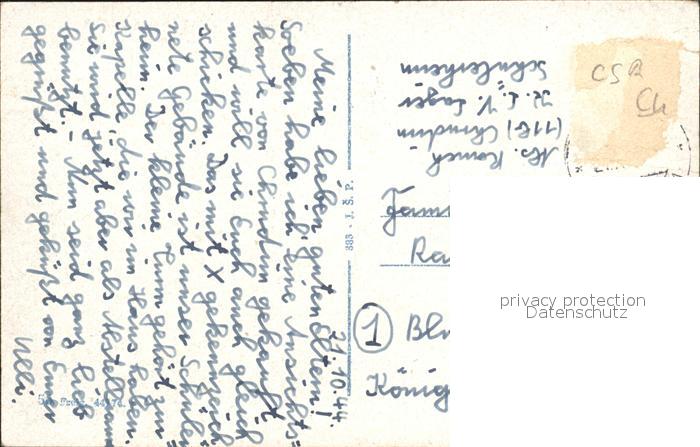 21.10.44.
Meine lieben guten Eltern!
Soeben habe ich eine Ansichts=
karte von Chrudim gekauft
und will sie Euch auch gleich
schicken. Das mit X gekennzeich=
nete Gebäude ist unser Schüler=
heim. Der kleine Turm gehört zur
Kapelle, die wir im Haus haben.
Sie wird jetzt aber als Abstellraum
benützt. – Nun seid ganz lieb
gegrüßt und geküßt von Eurer
Ulli.
383 - J. Š. P.
(11b) Chrudim
K. L. V. Lager
Schülerheim
Fam
Ra
1 Bl
König
privacy protection
Datenschutz